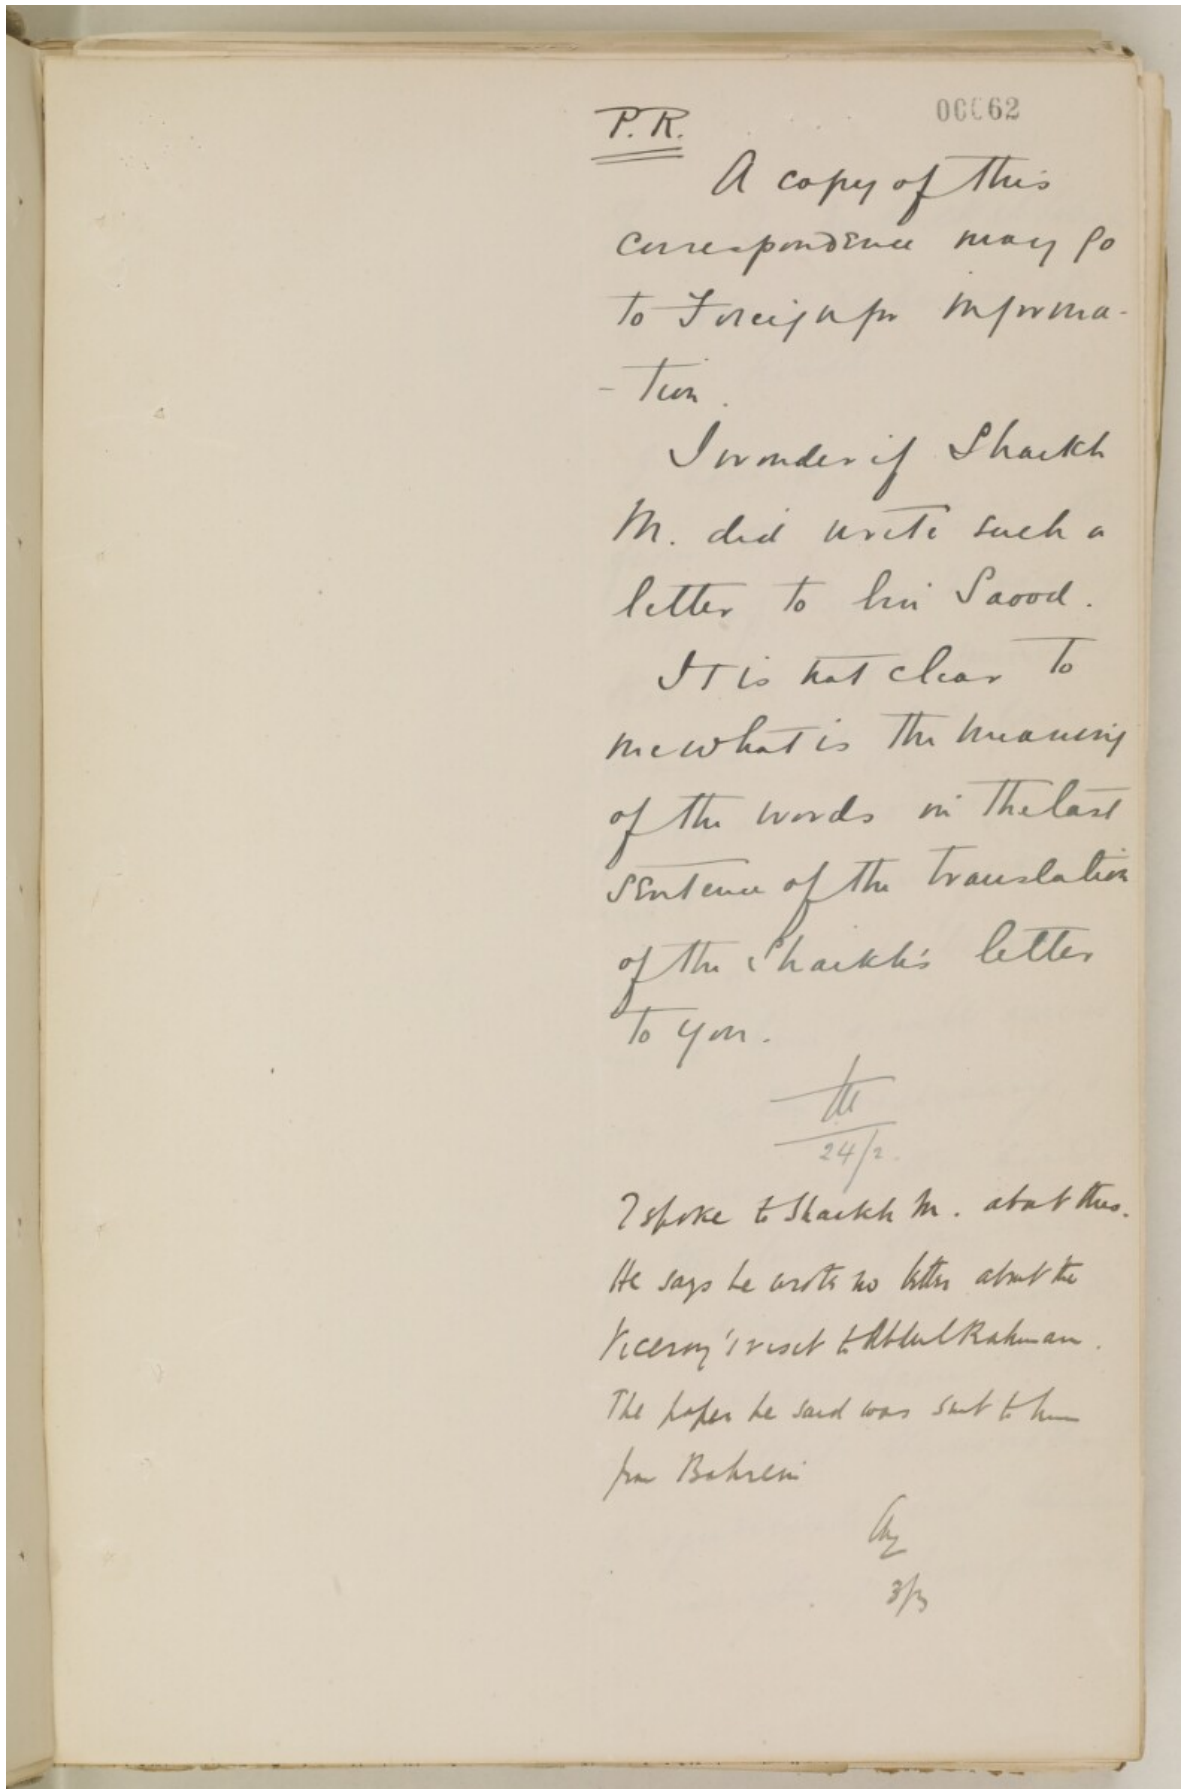 P. R.
00062
A copy of this
correspondence may go
to Foreign for informa-
-tion.
I wonder if Shaikh
M. did write such a
letter to bin Saood.
It is not clear to
me what is the meaning
of the words in the last
sentence of the translation
of the Shaikh's letter
to you.
24/2.
I spoke to Shaikh M. about this.
He says he wrote no letter about the
Viceroy's visit to Abdul Rahman.
The paper he said was sent to him
from Bahrein
3/3